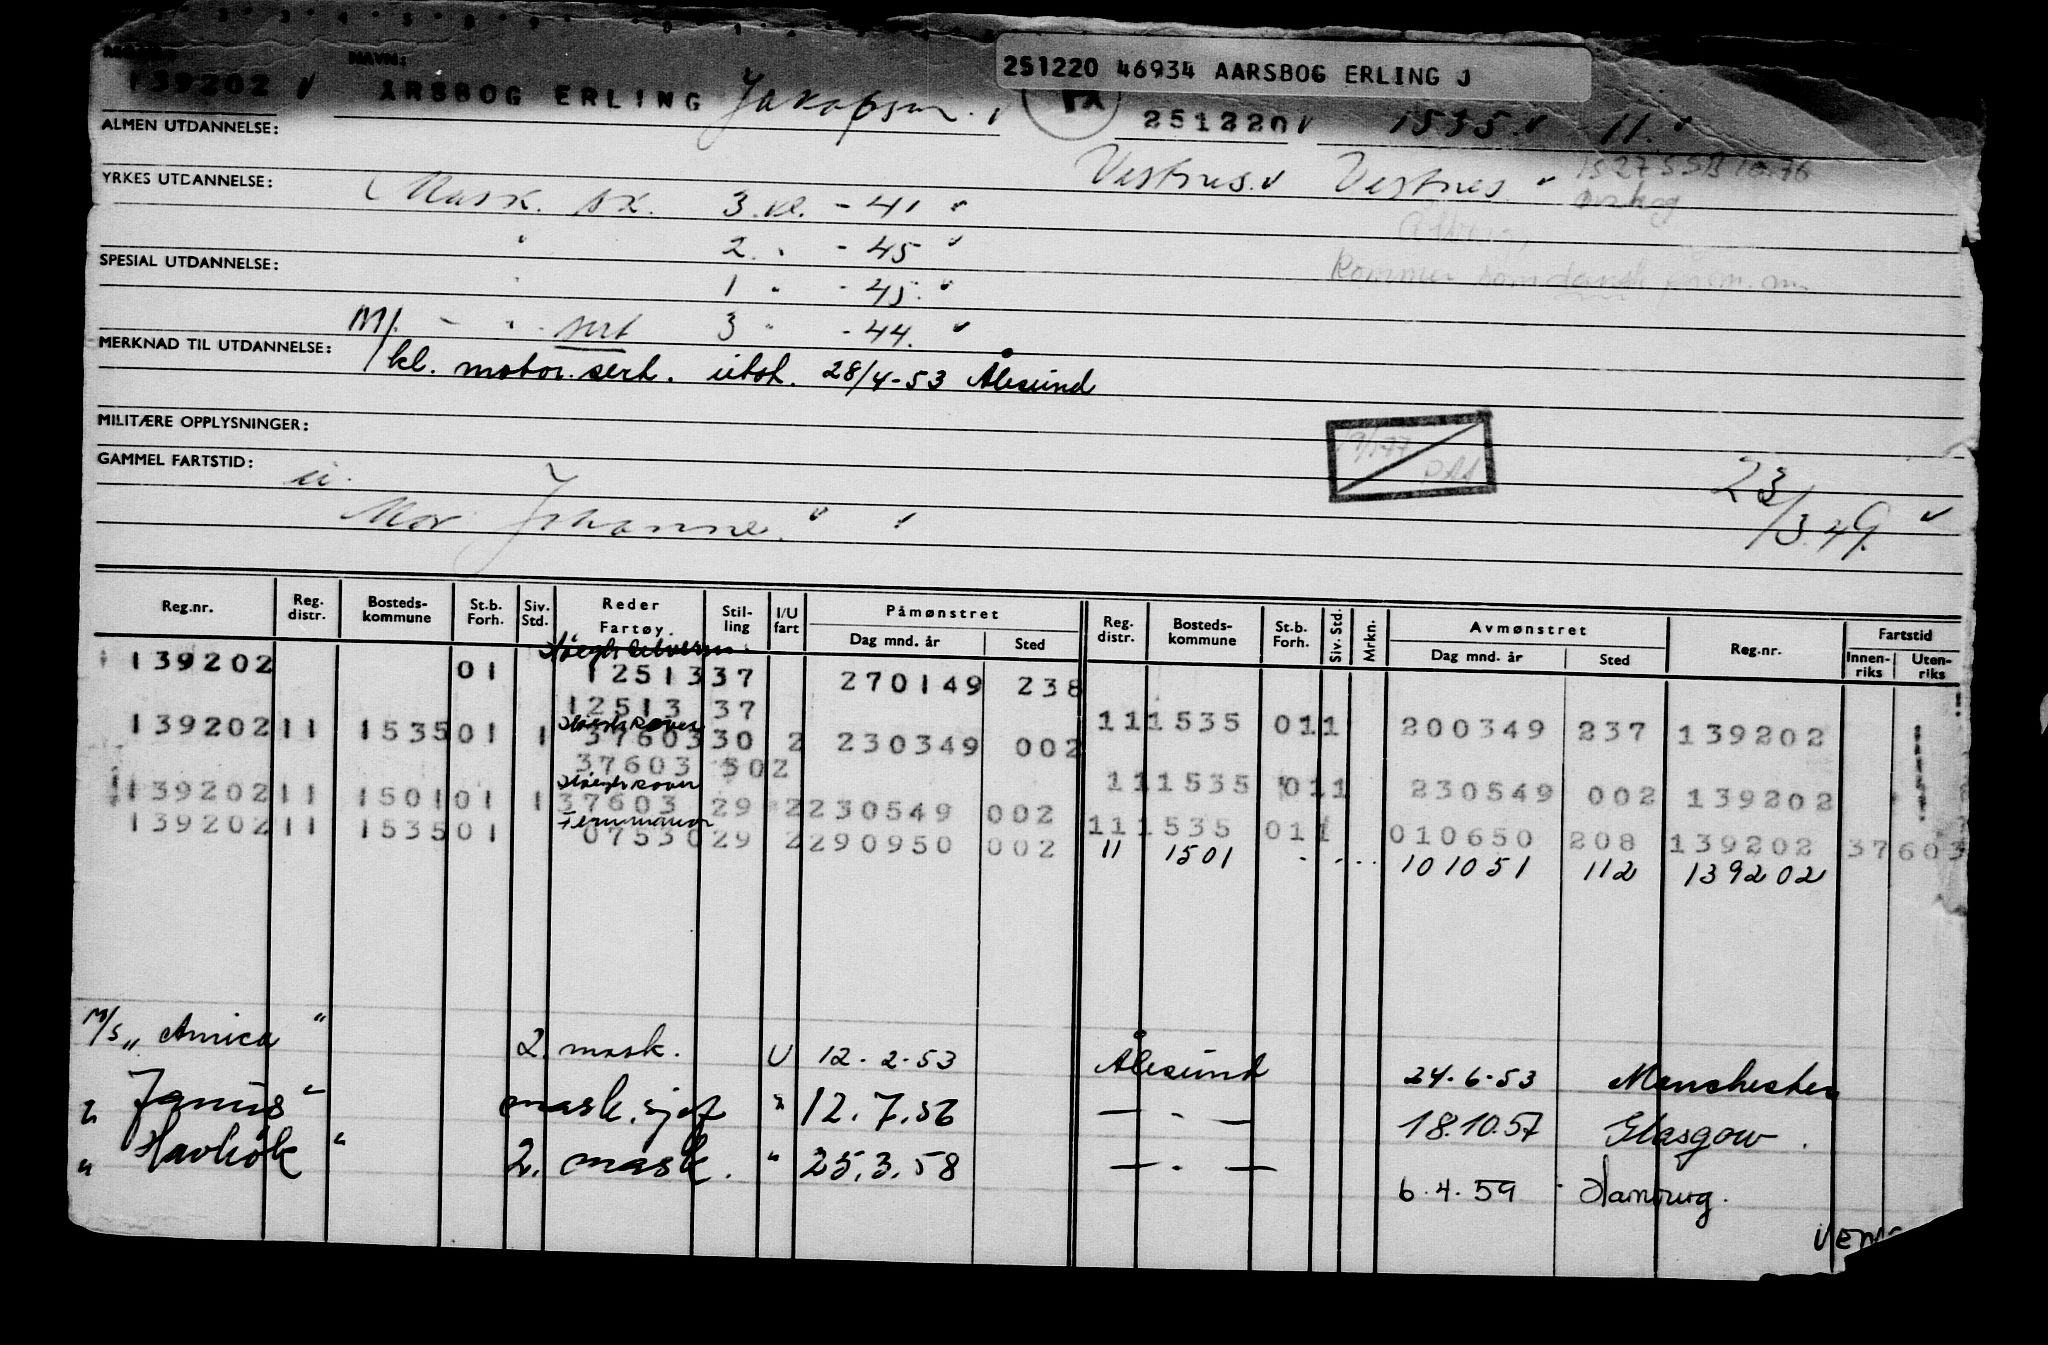 251220 46934 AARSBOG ERLING J
NAVN:
139202 ✓ ARSBOG ERLING Jakobsen. 251220 ✓ 1535. ✓ 11. ✓
ALMEN UTDANNELSE:
Vestnes. ✓ Vestnes
YRKES UTDANNELSE: Mask. sk. 3. kl. - 41 "
" 2. " - 45 "
SPESIAL UTDANNELSE: " 1 " - 45. "
Kommer som dansk
M/. - " - sert 3 " - 44. "
MERKNAD TIL UTDANNELSE: 1 kl. motor. sert. utst. 28/4-53 Ålesund
MILITÆRE OPPLYSNINGER:
GAMMEL FARTSTID: u.
23/3.49. ✓
Mor Johanne. "
Reg.nr. Reg. distr. Bosteds- kommune St.b. Forh. Siv. Std. Reder Fartøy. Stil- ling I/U fart Påmønstret Dag mnd. år Sted Reg. distr. Bosteds- kommune St.b. Forh. Siv. Std. Mrkn. Avmønstret Dag mnd. år Sted Reg.nr. Fartstid Innen- riks Uten- riks
139202 01 12513 37 270149 238
12513 37 11 1535 01 1 200349 237 139202
139202 11 1535 01 1 37603 30 2 230349 002
37603 302 11 1535 01 1 230549 002 139202
139202 11 1501 01 1 37603 29 2 230549 002
11 1535 01 1 010650 208 139202 37603
139202 11 1535 01 Fernmanor 07530 29 2 290950 002
11 1501 - - ... 101051 112 139202
M/S „Amica" 2. mask. U 12-2-53 Ålesund 24-6-53 Manchester
" Janus" mask.sjef " 12.7.56 — - — 18.10.57 Glasgow.
" Havhök " 2. mask. " 25.3.58 — - — 6.4.59 Hamburg.